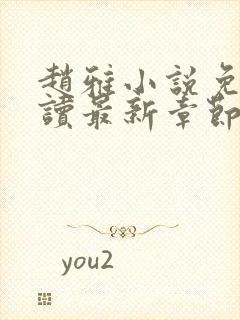 趙雅小說免
讀最新章節
you2